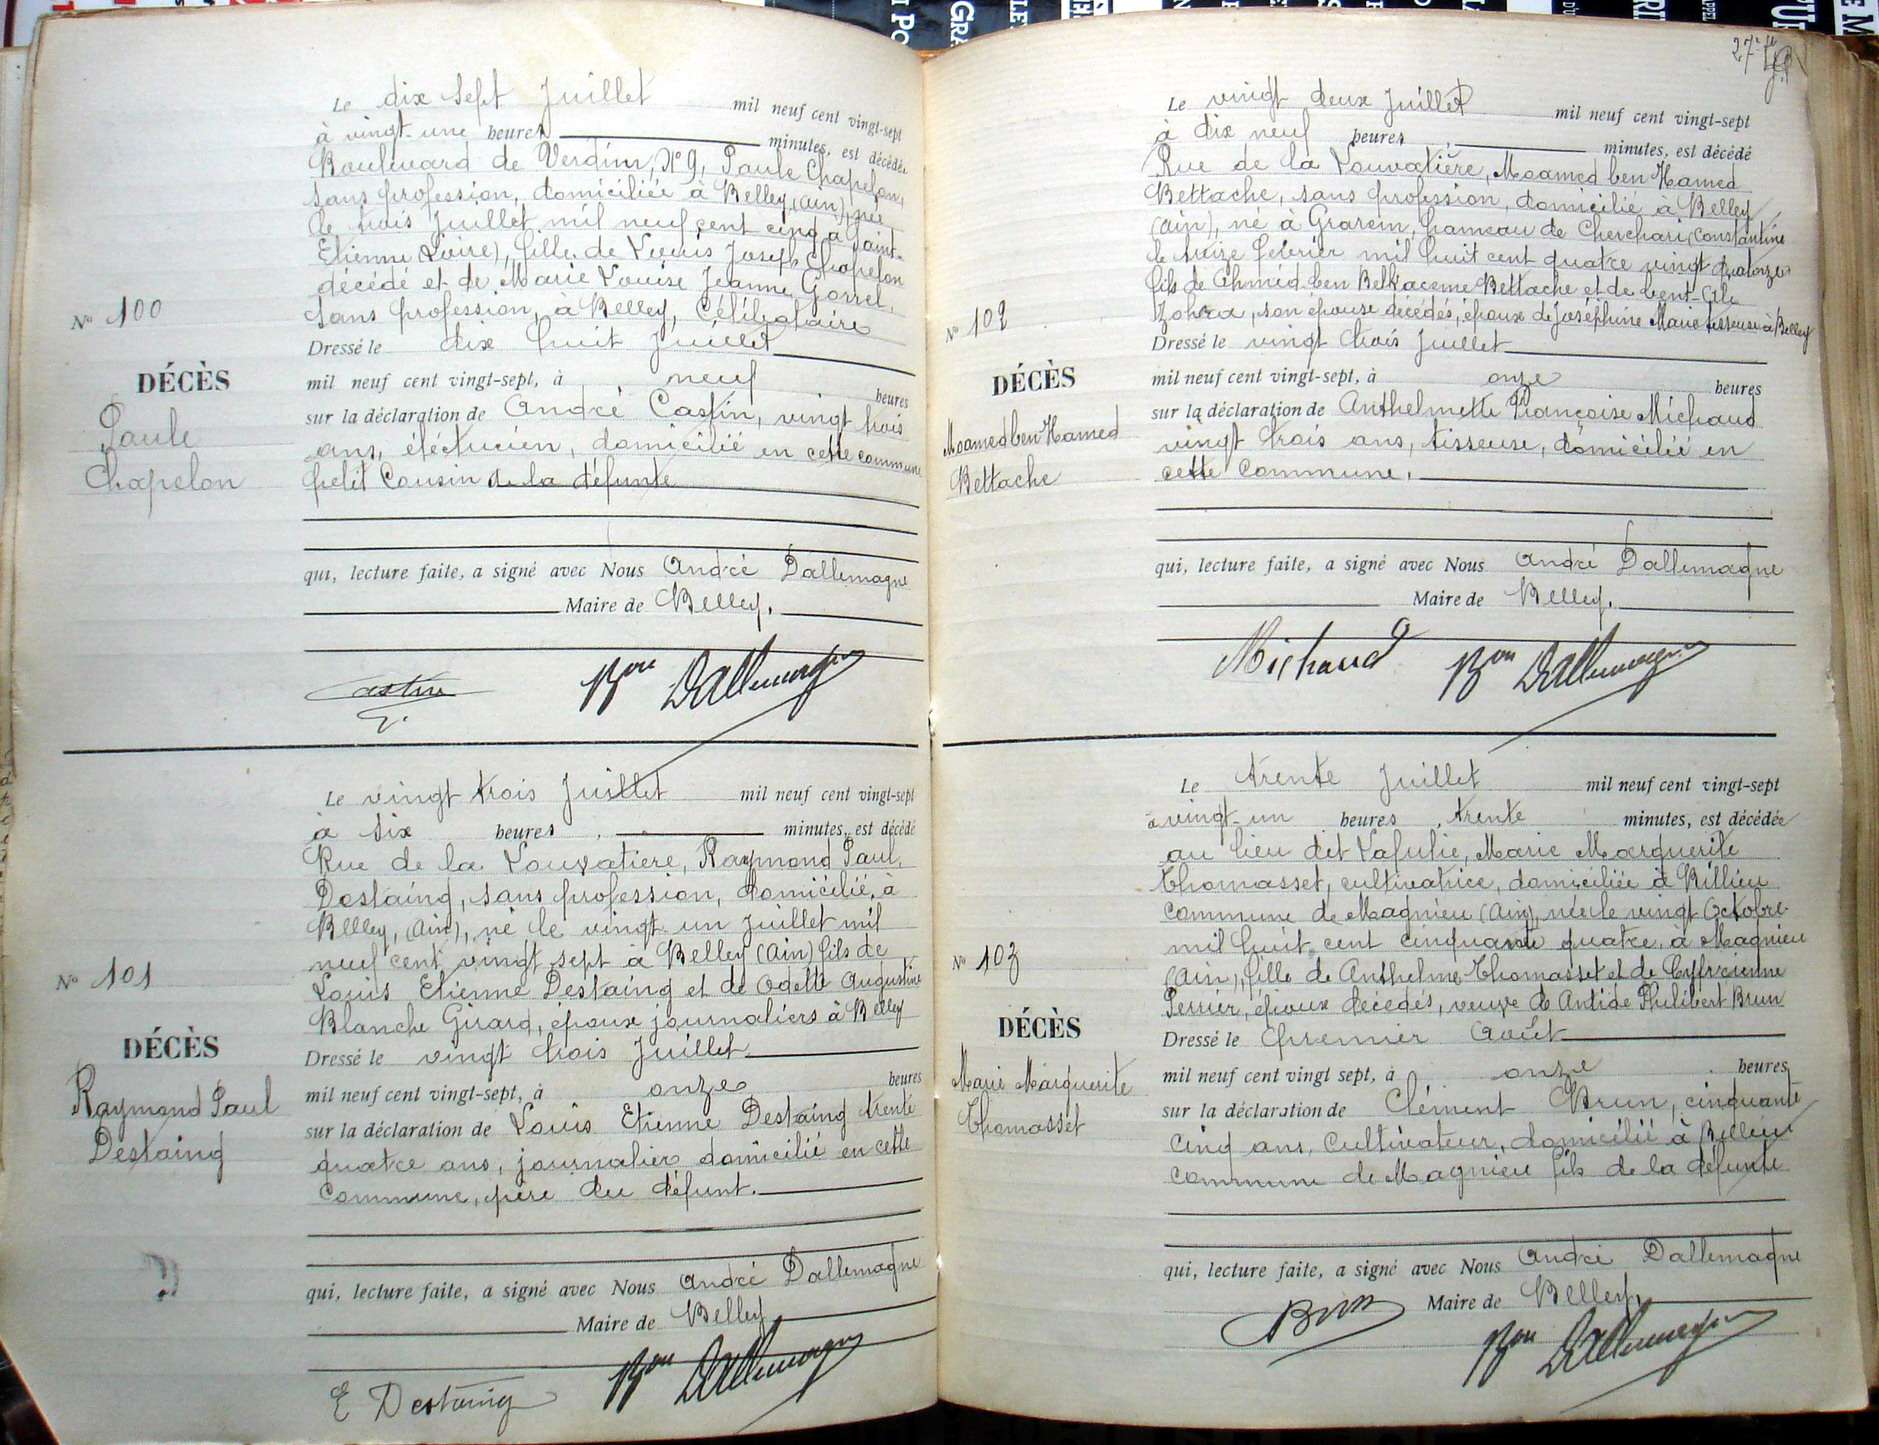 Le dix Sept Juillet mil neuf cent vingt-sept
à vingt-une heures minutes, est décédée
Boulevard de Verdun, N° 9, Paule Chapelon,
sans profession, domiciliée à Belley, (Ain), née
le trois Juillet mil neuf cent cinq à Saint-
Etienne (Loire), fille de Louis Joseph Chapelon
décédé et de Marie Louise Jeanne
sans profession, à Belley, Célibataire
N° 100
Dressé le dix huit Juillet
DÉCÈS
mil neuf cent vingt-sept, à neuf heures
Paule
Chapelon
sur la déclaration de André Castin, vingt trois
ans, éléctricien, domicilié en cette commune
petit Cousin de la défunte
qui, lecture faite, a signé avec Nous André Dallemagne
Maire de Belley.
Castin
Bon Dallemagne
Le vingt trois Juillet mil neuf cent vingt-sept
à six heures, minutes, est décédé
Rue de la Louvatière, Raymond Paul,
Destaing, sans profession, domicilié, à
Belley, (Ain), né le vingt-un Juillet mil
neuf cent vingt sept à Belley (Ain) fils de
Louis Etienne Destaing et de Odette Augustine
Blanche Girard, époux journaliers à Belley
N° 101
Dressé le vingt trois Juillet
DÉCÈS
mil neuf cent vingt-sept, à onze heures
Raymond Paul
Destaing
sur la déclaration de Louis Etienne Destaing trente
quatre ans, journalier domicilié en cette
Commune, père du défunt.
?
qui, lecture faite, a signé avec Nous André Dallemagne
Maire de Belley
E Destaing
Bon Dallemagne
27
Le vingt deux Juillet mil neuf cent vingt-sept
à dix neuf heures, minutes, est décédé
Rue de la Louvatière, Moamed ben Hamed
Bettache, sans profession, domicilié à Belley
(Ain), né à Grarem, hameau de Cherchari, Constantine
le treize février mil huit cent quatre vingt quatorze
fils de Ahmed ben Belkaceme Bettache et de bent-Ali
Zohra, son épouse décédés, époux de Joséphine Marie tisseuse à Belley
N° 102
Dressé le vingt trois Juillet
DÉCÈS
mil neuf cent vingt-sept, à onze heures
Moamed ben Hamed
Bettache
sur la déclaration de Anthelmette Françoise Michaud
vingt trois ans, tisseuse, domiciliée en
cette Commune.
qui, lecture faite, a signé avec Nous André Dallemagne
Maire de Belley.
Michaud
Bon Dallemagne
Le trente Juillet mil neuf cent vingt-sept
à vingt-un heures, trente minutes, est décédée
au lieu dit Lafulie, Marie Marguerite
Thomasset, cultivatrice, domiciliée à Billieu
commune de Magnieu (Ain), née le vingt Octobre
mil huit cent cinquante quatre, à Magnieu
(Ain), fille de Anthelme Thomasset et de
Perrier, époux décédés, veuve de Antide Philibert Brun
N° 103
Dressé le premier Août
DÉCÈS
mil neuf cent vingt sept, à onze heures
Marie Marguerite
Thomasset
sur la déclaration de Clément Brun, cinquante
cinq ans, Cultivateur, domicilié à Billieu
commune de Magnieu fils de la défunte
qui, lecture faite, a signé avec Nous André Dallemagne
Maire de Belley,
Brun
Bon Dallemagne